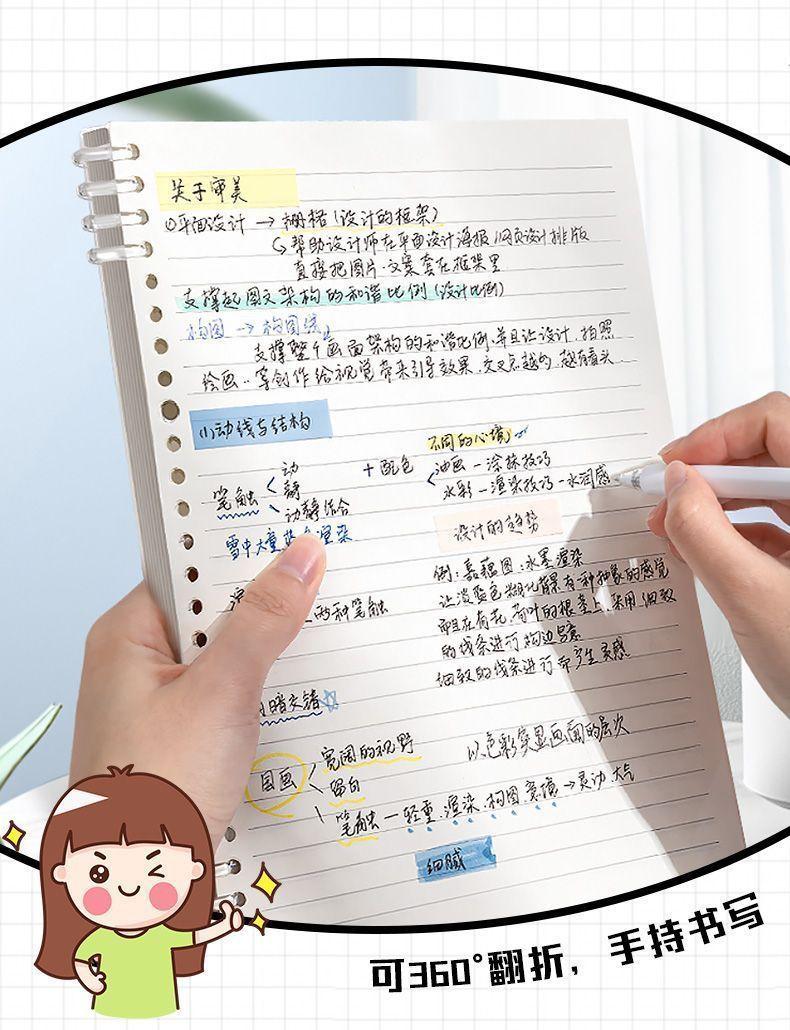 关于审美
①平面设计 → 栅格(设计的框架)
↳帮助设计师在平面设计海报、网页设计排版
直接把图片、文案套在框架里
支撑起图文架构的和谐比例(设计比例)
构图 → 构图线
支撑整个画面架构的和谐比例、并且让设计、拍照
绘画..等创作给视觉带来引导效果、交叉点越多、越有看头
(1)动线与结构
不同的心境
动
+配色
油画 — 涂抹技巧
笔触
静
水彩 — 渲染技巧 — 水润感
动静结合
设计的趋势
雪中大量 渲染
例:嘉蕴图:水墨渲染
让淡蓝色糊化背景有一种抽象的感觉
两种笔触
而且在荷花、荷叶的根茎上采用细致
的线条进行勾边写意
细致的线条进行而产生灵感
暗交错
宽阔的视野
以色彩突显画面的层次
国画
留白
笔触 — 轻重、渲染、构图、意境 → 灵动、大气
细腻
可360°翻折，手持书写